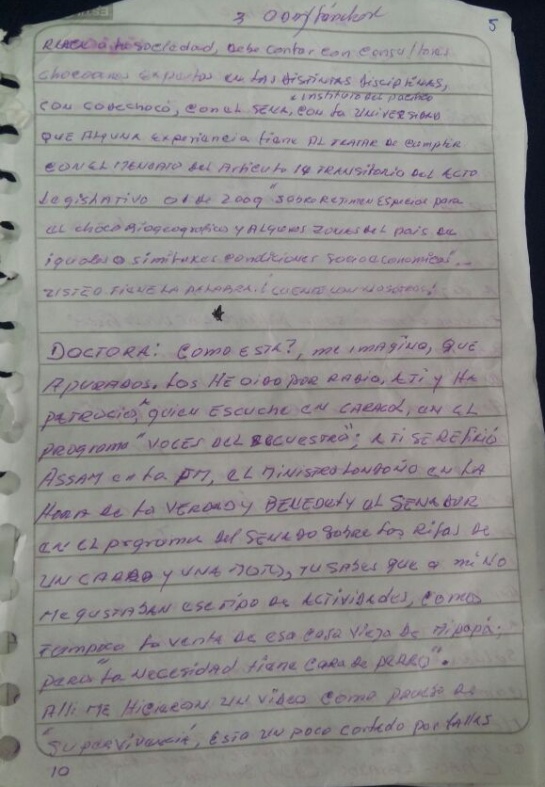 3
5
a la sociedad, debe contar con consultores
chocoanos expertos en las distintas disciplinas,
Instituto del pacifico
con codechocó, con el SENA, con la UNIVERSIDAD
QUE ALGUNA experiencia tiene AL TRATAR de cumplir
CON EL MENDATO del Articulo 14 TRANSITORIO DEL ACTO
legislativo 01 de 2009 "sobre Regimen Especial para
el chocó Biogeografico y ALGUNAS zonas del pais de
iguales o similares condiciones socioeconomicas"...
USTED TIENE LA PALABRA.! CUENTE CON NOSOTROS!
DOCTORA: COMO ESTA?, me imagino, QUE
APURADOS. LOS HE OIDO POR RADIO, A TI y HA
PATROCIO, QUIEN ESCUCHE EN CARACOL, EN EL
PROGRAMA "VOCES DEL SECUESTRO"; A TI SE REFIRIÓ
ASSAM en la FM, EL MINISTRO LONDOÑO EN LA
HORA de la VERDAD y BENEDETY AL SENADOR
en el programa del SENADO sobre LAS RIFAS DE
UN CARRO y UNA MOTO, TU SABES QUE A MI NO
ME GUSTABAN ESE TIPO DE ACTIVIDADES, COMO
TAMPOCO la venta de esa casa vieja de Mi papá;
pero "la necesidad tiene CARA DE PERRO".
Alli ME HICIERON UN VIDEO como prueba de
"Supervivencia", ESTA UN POCO cortado por fallas
10